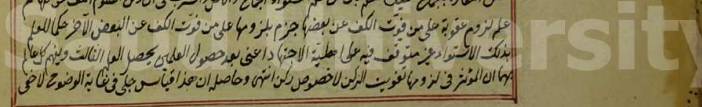 علم لزوم عقوبة على من فوت الكف عن بعضها جزم بلزومها على من فوت الكف عن البعض الآخر حكما للعلم
بذلك الاستواء غير متوقف فيه على اهلية الاجتهاد اعنى بعد حصول العلمين يحصل العلم الثالث ويفهم كل عالم
بهما ان المؤثر فى لزومها تفويت الركن لا خصوص ركن انتهى وحاصله ان هذا قياس جلى فى غاية الوضوح لا خفى
ersity